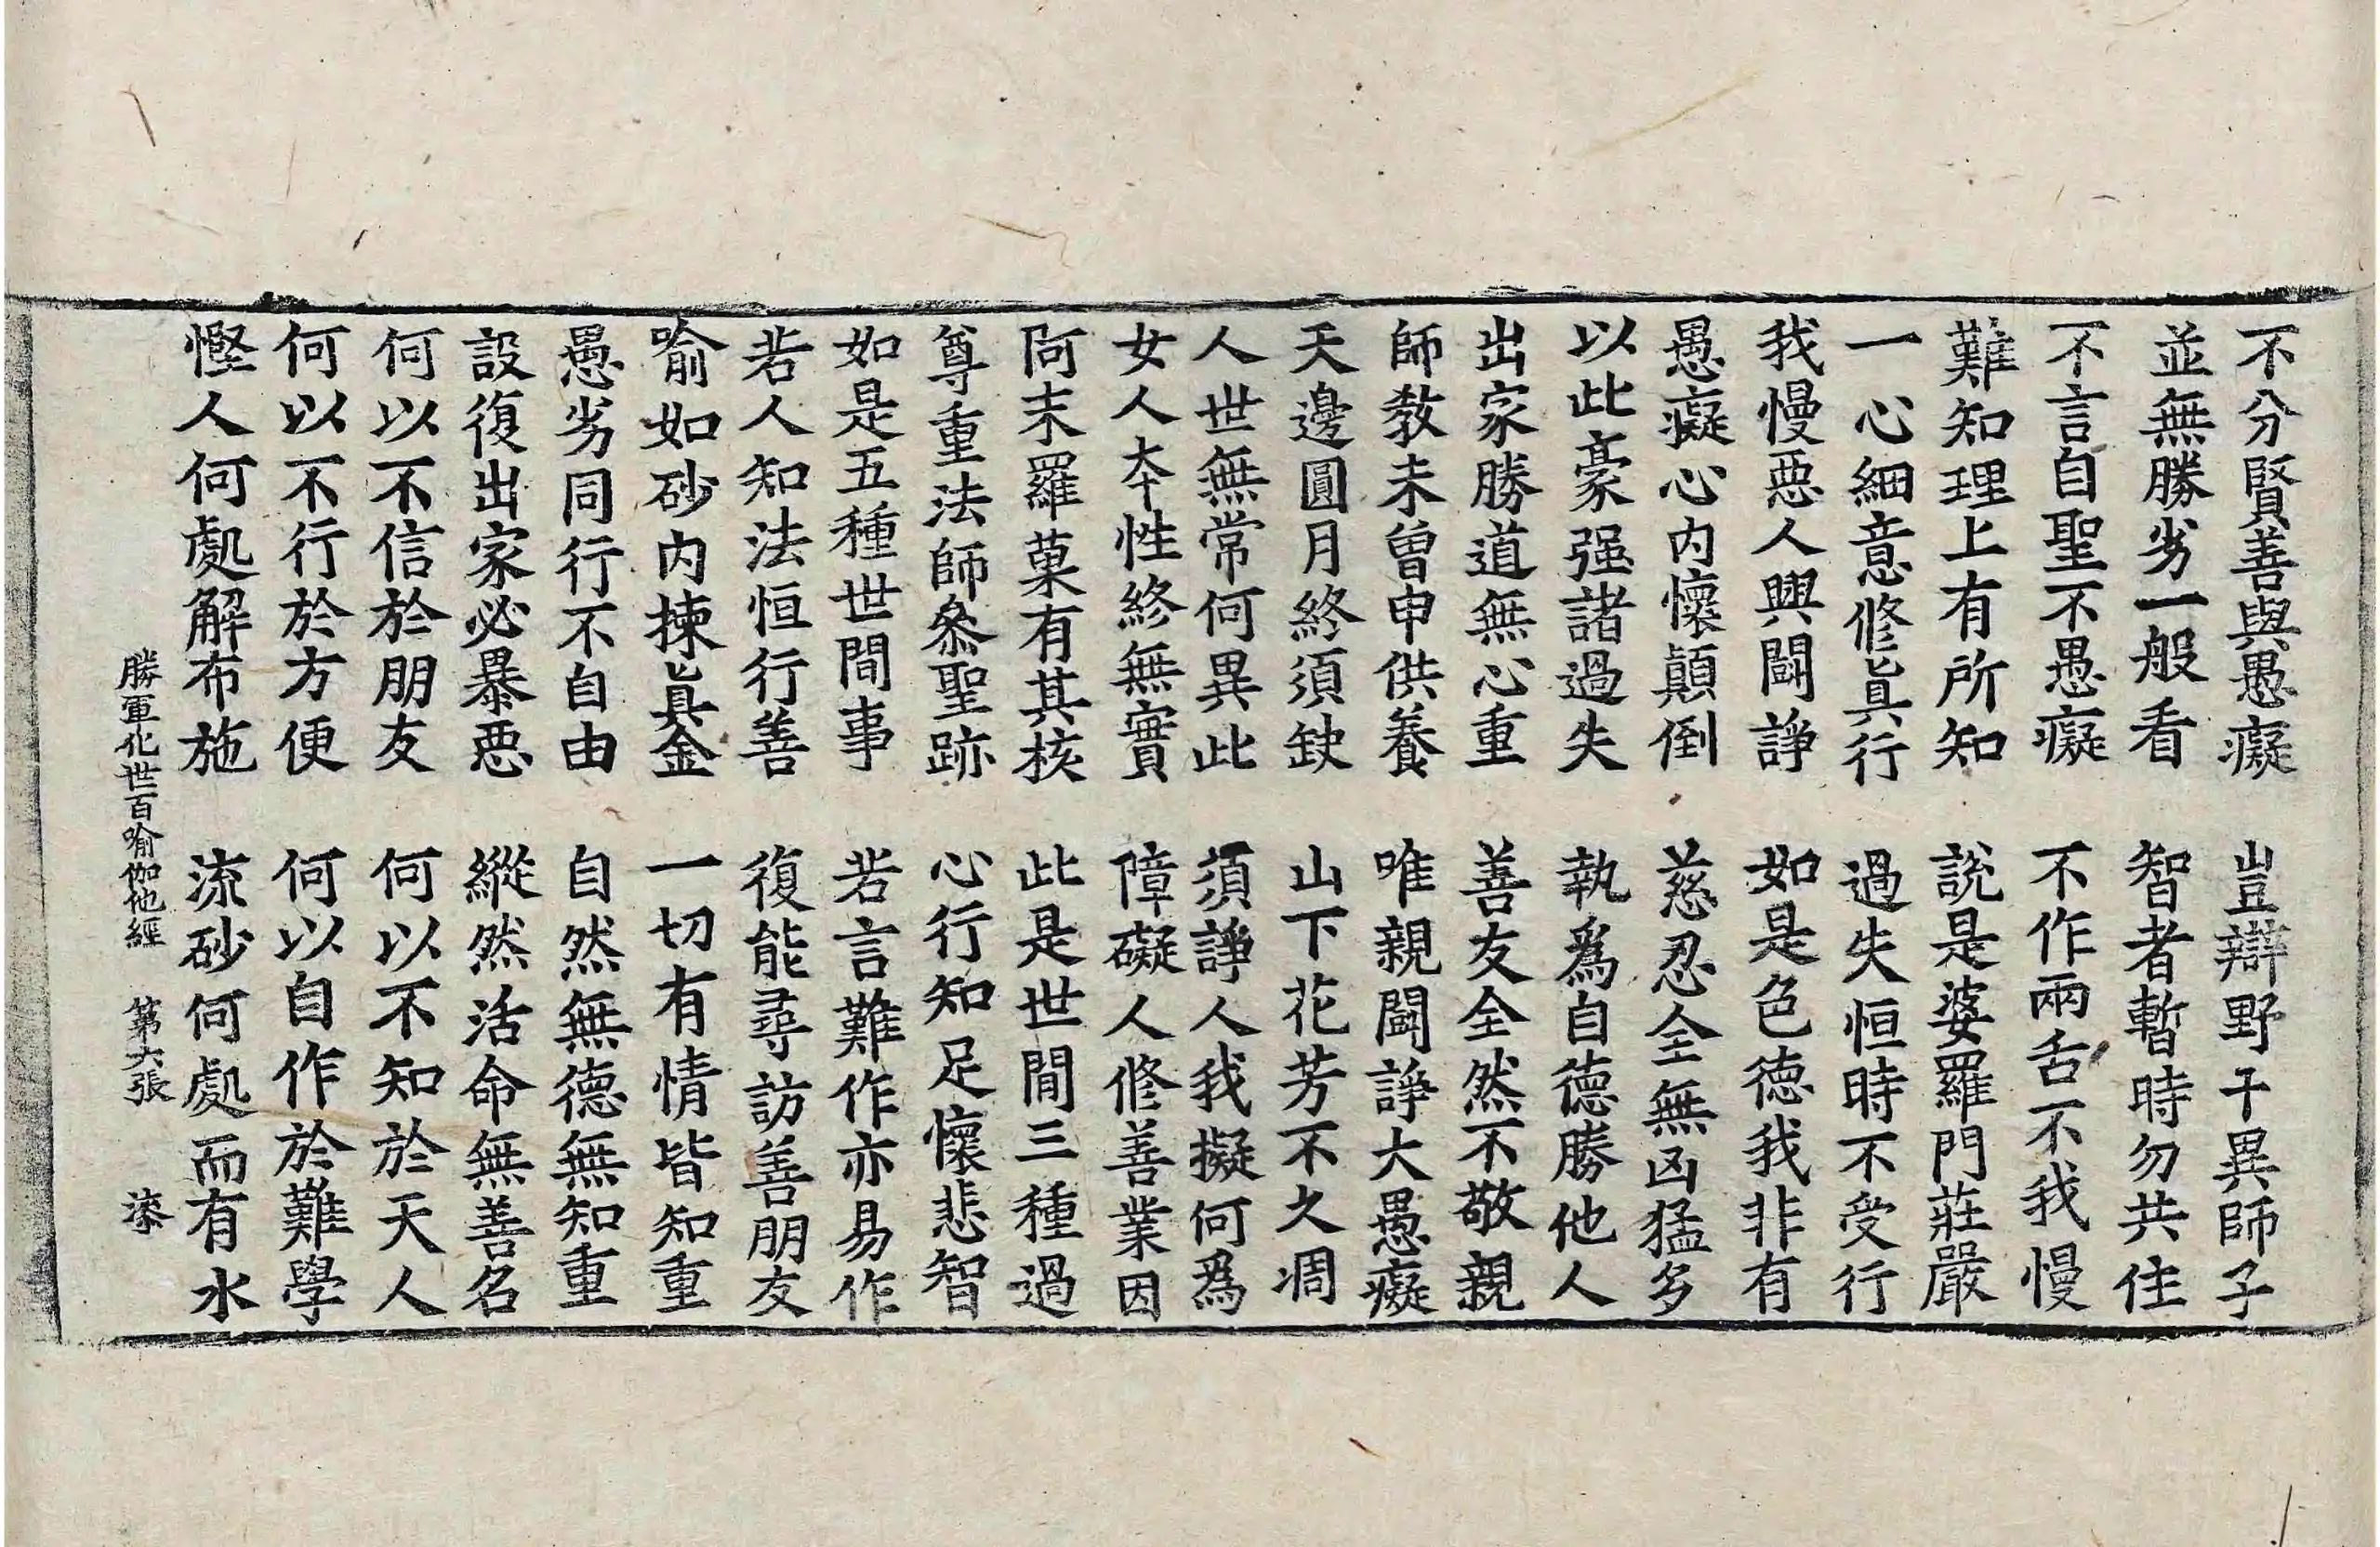 不分賢善與愚癡　豈辯野干異師子
並無勝劣一般看　智者暫時勿共住
不言自聖不愚癡　不作兩舌不我慢
難知理上有所知　說是婆羅門莊嚴
一心細意修眞行　過失恒時不受行
我慢惡人興鬪諍　如是色德我非有
愚癡心內懷顛倒　慈忍全無凶猛多
以此豪强諸過失　執爲自德勝他人
出家勝道無心重　善友全然不敬親
師敎未曾申供養　唯親鬪諍大愚癡
天邊圓月終須缺　山下花芳不久凋
人世無常何異此　須諍人我擬何爲
女人本性終無實　障礙人修善業因
阿末羅菓有其核　此是世間三種過
尊重法師叅聖跡　心行知足懷悲智
如是五種世間事　若言難作亦易作
若人知法恒行善　復能尋訪善朋友
喻如砂內揀眞金　一切有情皆知重
愚劣同行不自由　自然無德無知重
設復出家必暴惡　縱然活命無善名
何以不信於朋友　何以不知於天人
何以不行於方便　何以自作於難學
慳人何處解布施　流砂何處而有水
勝軍化世百喻伽他經　第六張　漆